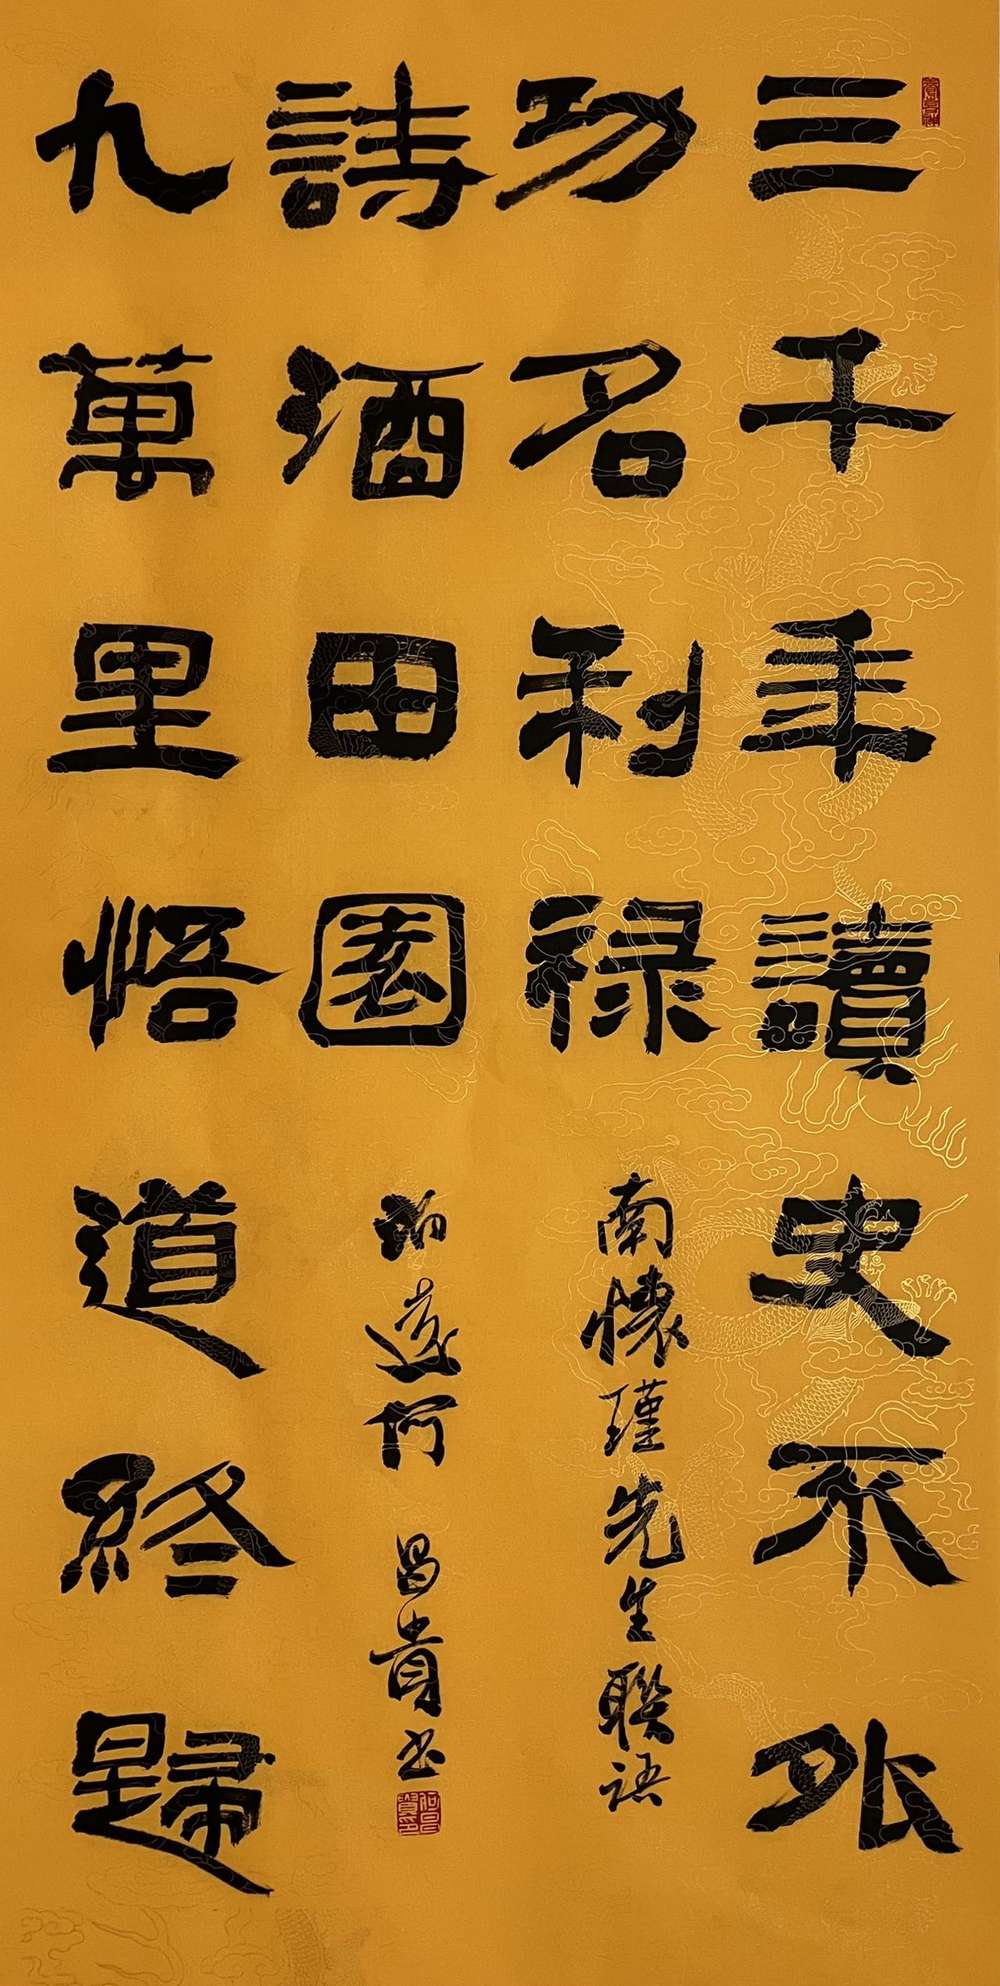 三千年讀史不外
功名利禄
九萬里悟道終歸
詩酒田園
南懷瑾先生聯語
何昌貴书